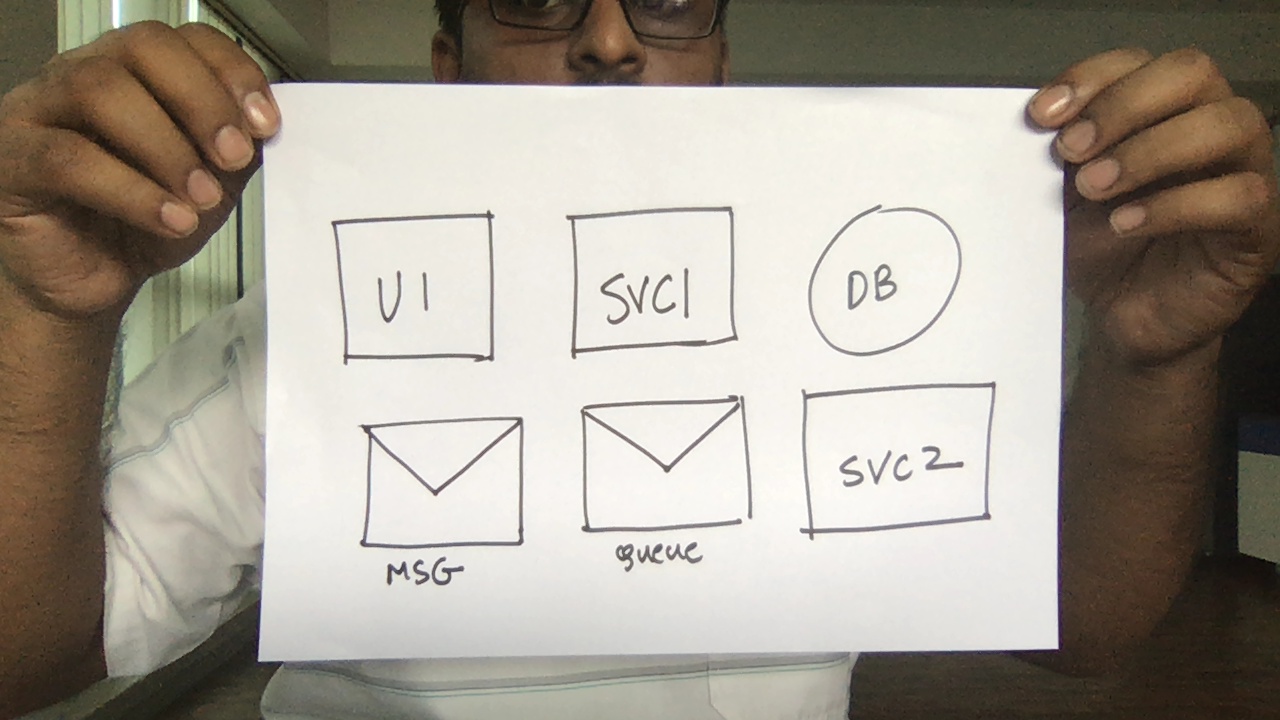 UI
SVC1
DB
MSG
queue
SVC2